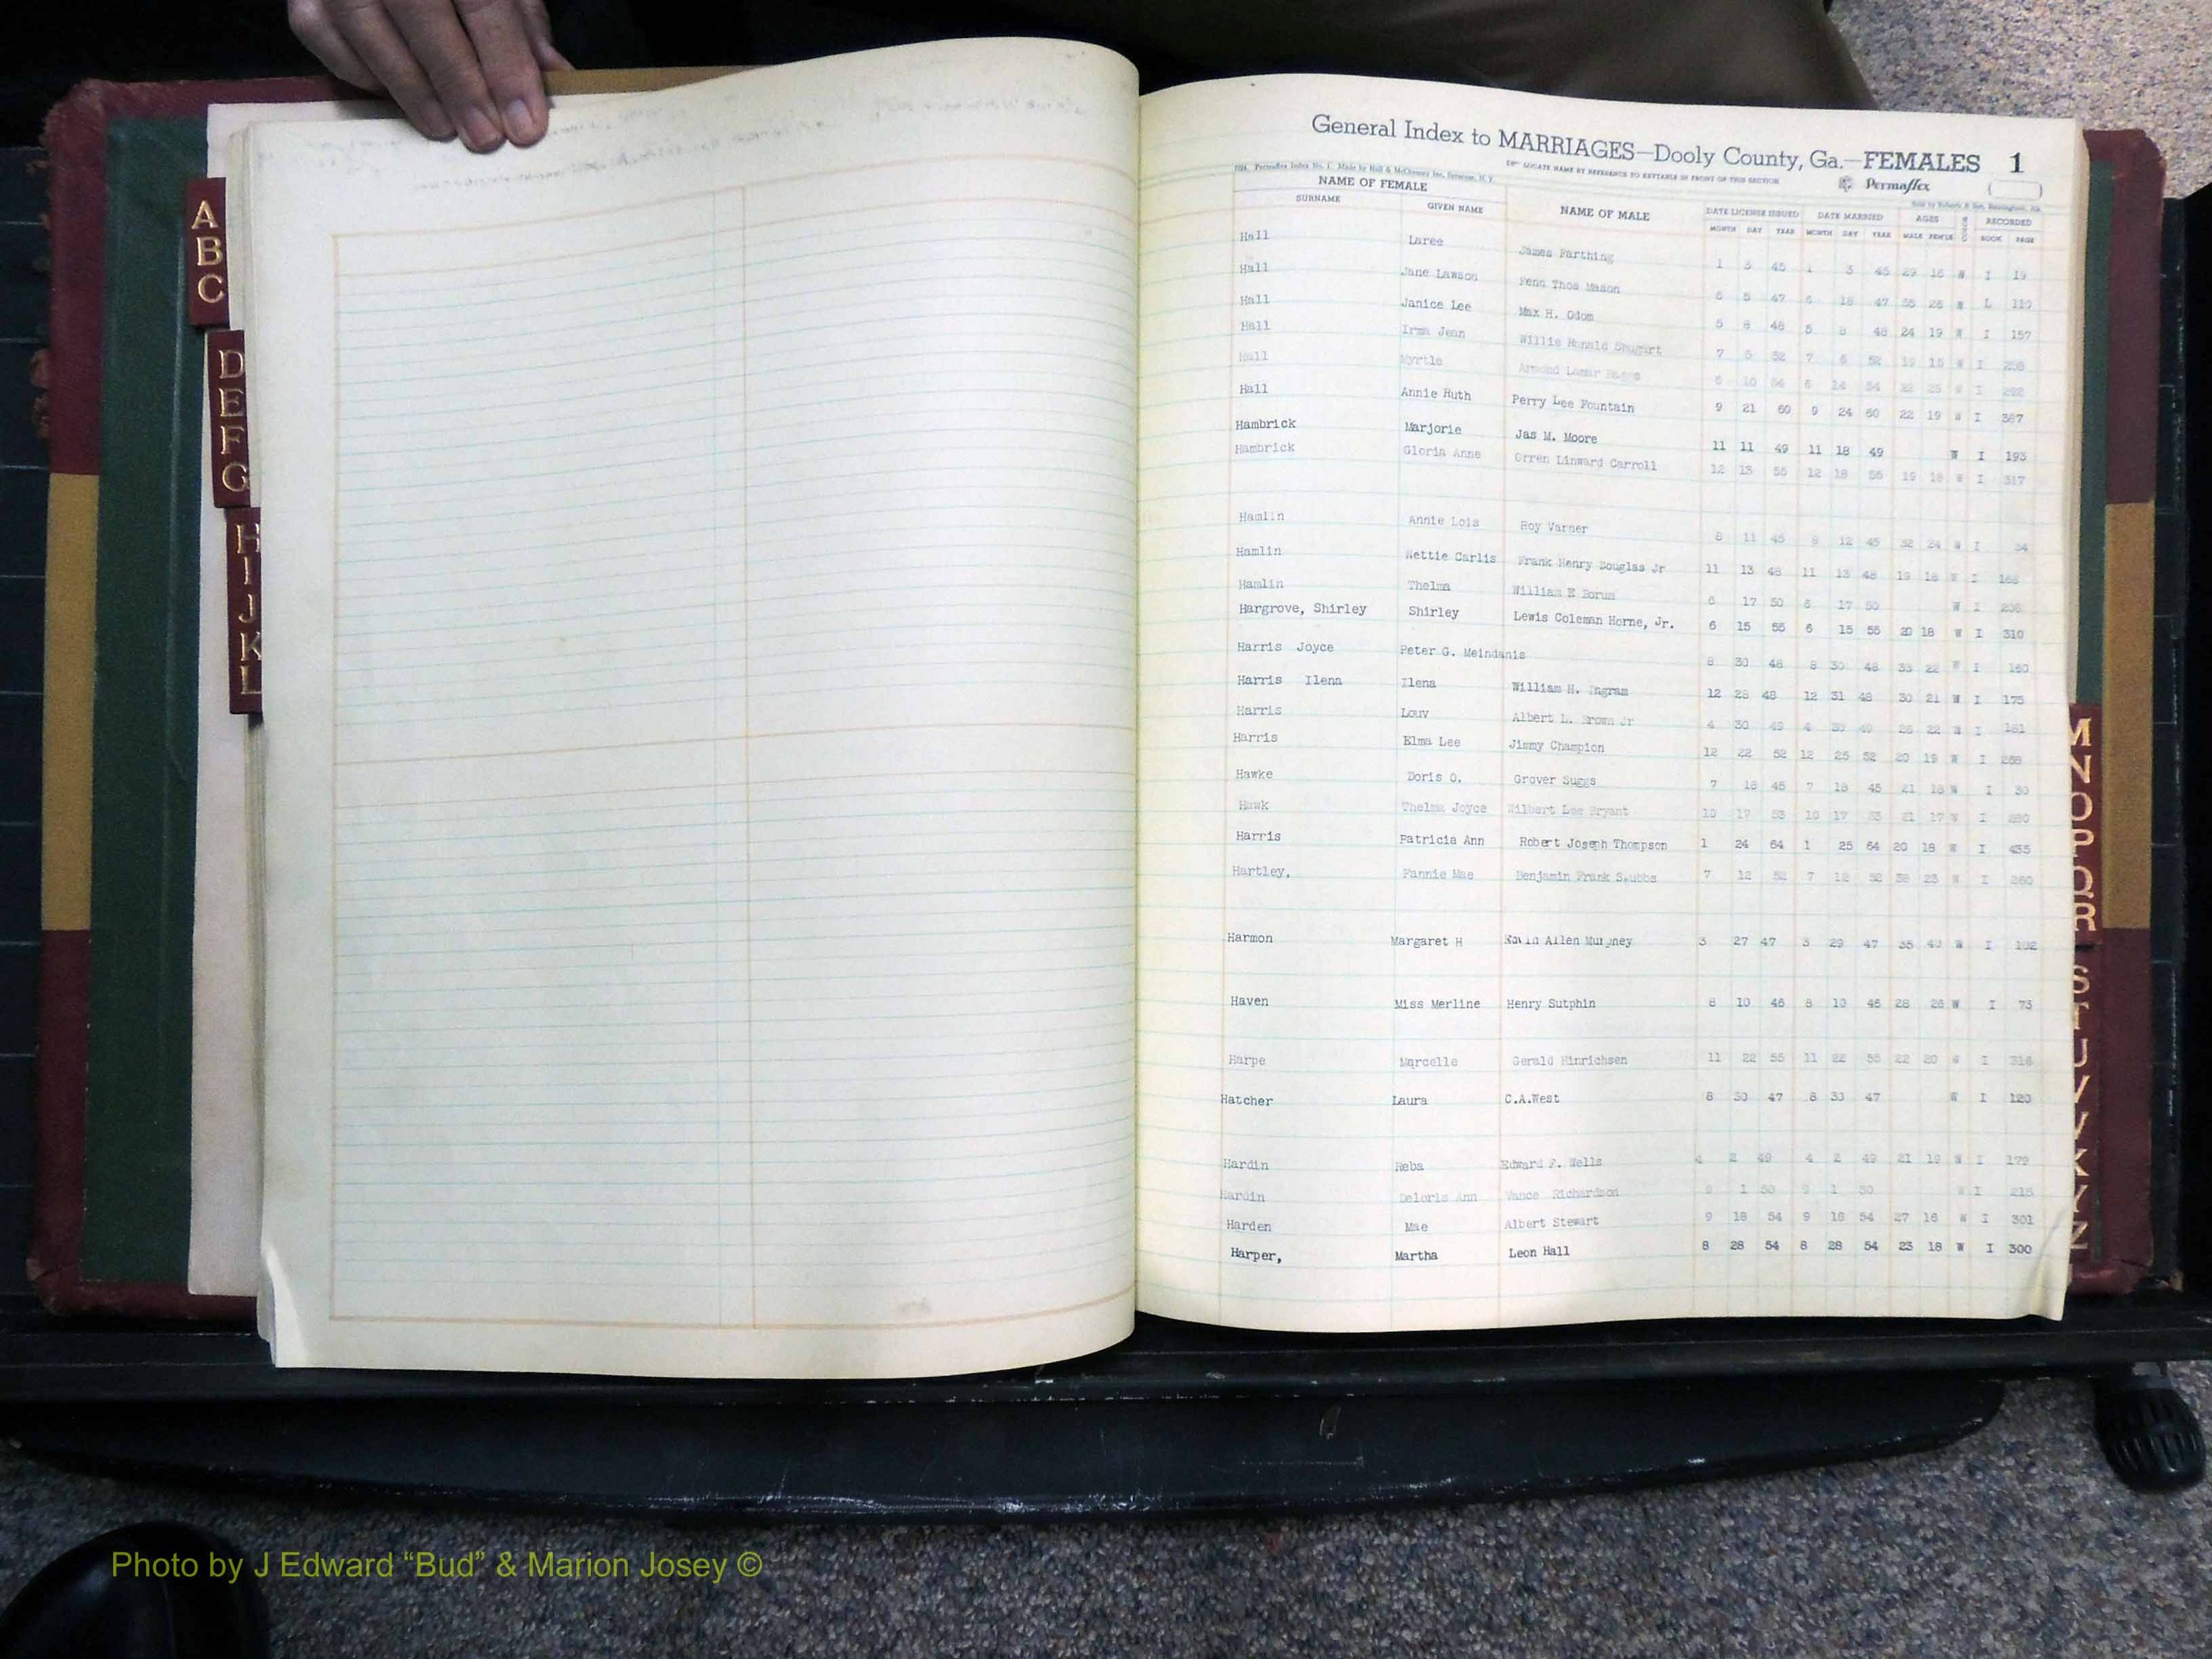 General Index to MARRIAGES—Dooly County, Ga.—FEMALES 1
LOCATE NAME BY REFERENCE TO KEYTABLE IN FRONT OF THIS SECTION
Permaflex
NAME OF FEMALE
SURNAME GIVEN NAME NAME OF MALE DATE LICENSE ISSUED DATE MARRIED AGES COLOR RECORDED
MONTH DAY YEAR MONTH DAY YEAR MALE FEM'LE BOOK PAGE
Hall Laree James Farthing 1 3 45 1 3 45 29 16 W I 19
Hall Jane Lawson Penn Thos Mason 6 5 47 6 18 47 26 W 110
Hall Janice Lee Max H. Odom 5 8 48 5 8 48 24 19 W I 157
Hall Irma Jean Willie Ronald Shugart 7 5 52 7 6 52 19 15 W I
Hall Myrtle Armond Lamar 6 10 54 6 14 54 W I
Hall Annie Ruth Perry Lee Fountain 9 21 60 9 24 60 22 19 W I 367
Hambrick Marjorie Jas M. Moore 11 11 49 11 18 49 W I 193
Hambrick Gloria Anne Orren Linward Carroll 12 13 55 12 18 55 19 18 W I 317
Hamlin Annie Lois Roy Varner 8 11 45 8 12 45 32 24 W I 34
Hamlin Nettie Carlis Frank Henry Douglas Jr 11 13 48 11 13 48 19 18 W I
Hamlin Thelma William E Borum 6 17 50 6 17 50 W I
Hargrove, Shirley Shirley Lewis Coleman Horne, Jr. 6 15 55 6 15 55 20 18 W I 310
Harris Joyce Peter G. Meindanis 8 30 48 8 30 48 33 22 W I 160
Harris Ilena Ilena William H. Ingram 12 28 48 12 31 48 30 21 W I 175
Harris Louv Albert L. Brown Jr 4 30 49 4 30 49 26 22 W I 181
Harris Elma Lee Jimmy Champion 12 22 52 12 25 52 20 19 W I 268
Hawke Doris O. Grover Suggs 7 18 45 7 18 45 21 18 W I 30
Hawk Thelma Joyce Wilbert Lee Bryant 10 17 53 10 17 53 21 17 W I
Harris Patricia Ann Robert Joseph Thompson 1 24 64 1 25 64 20 18 W I 435
Hartley, Fannie Mae Benjamin Frank Stubbs 7 12 52 7 12 52 38 23 W I 260
Harmon Margaret H Edwin Allen Murphey 3 27 47 3 29 47 35 40 W I 102
Haven Miss Merline Henry Sutphin 8 10 46 8 10 46 28 26 W I 73
Harpe Marcelle Gerald Hinrichsen 11 22 55 11 22 55 22 20 W I 316
Hatcher Laura C.A.West 8 30 47 8 30 47 W I 120
Hardin Reba Edward F. Wells 4 2 49 4 2 49 21 19 W I 179
Hardin Deloris Ann Vance Richardson 9 1 50 9 1 50 W I 215
Harden Mae Albert Stewart 9 18 54 9 18 54 27 16 W I 301
Harper, Martha Leon Hall 8 28 54 8 28 54 23 18 W I 300
A
B
C
D
E
F
G
H
I
J
K
L
M
N
O
P
Q
R
S
T
U
V
Y
Z
Photo by J Edward “Bud” & Marion Josey ©